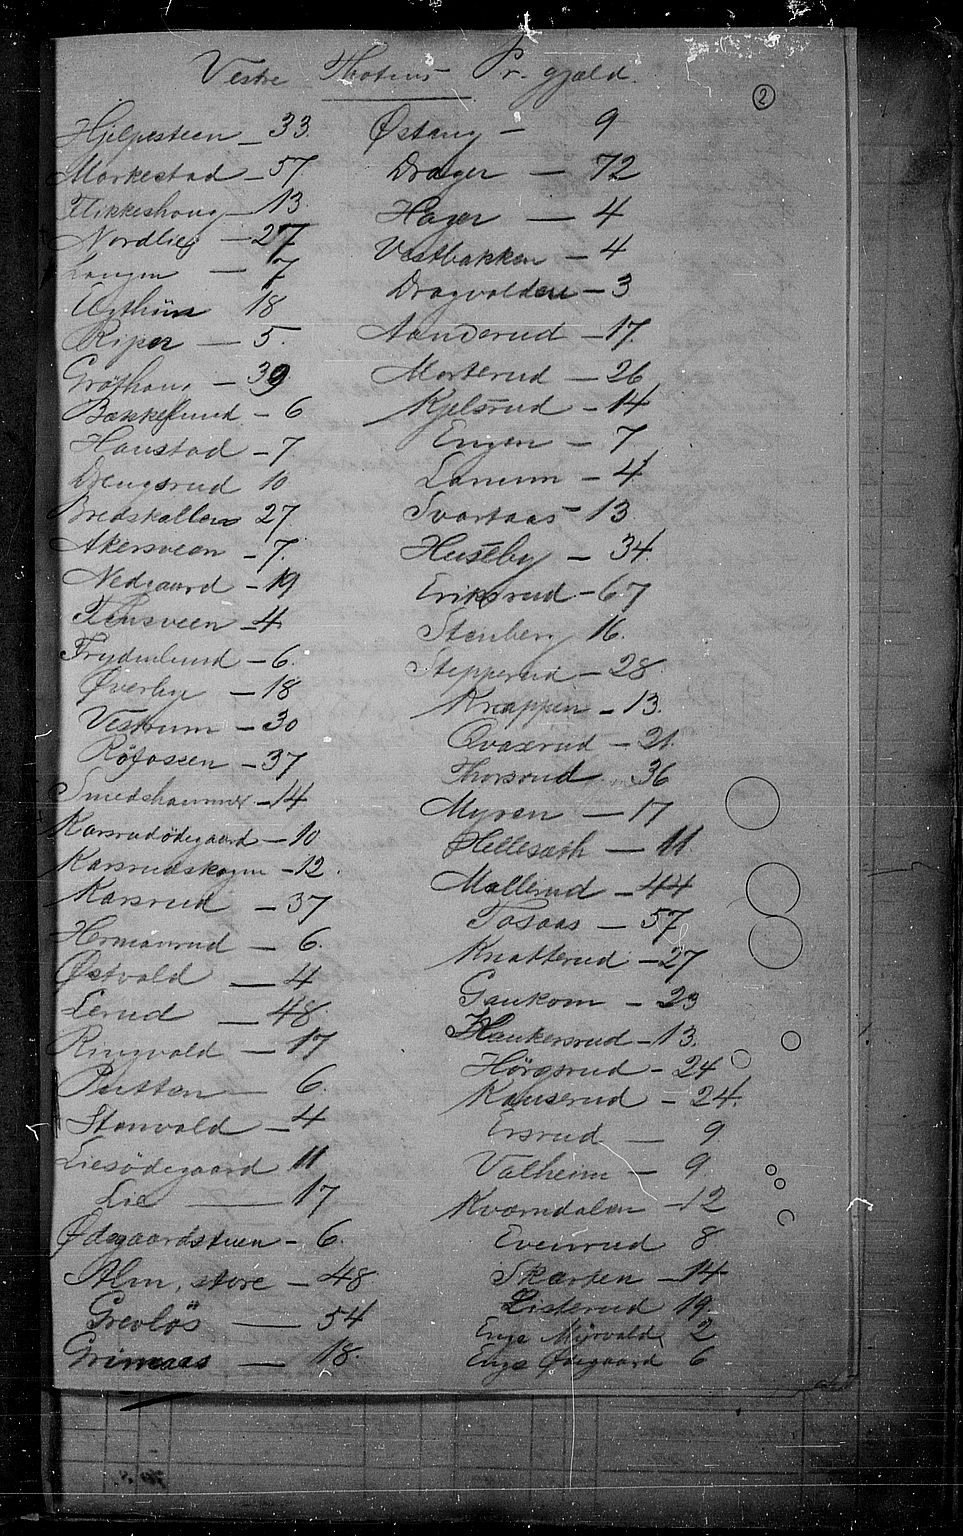 Vestre Thotens Pr. gjæld.
2
Hjelpesteen - 33.
Markestad - 57
Flikkeshoug - 13.
Nordlieg - 27
Langen - 7
18
Riper - 5.
Gröfhoug - 39
Bækkelund - 6
Haustad - 7.
Drengsrud 10
Bredskallen 27
Akersveen - 7.
Nedgaard - 19
4
Frydenlund - 6.
Øverby - 18
Vestrum - 30
Röfossen - 37
Smedshammer - 14
Karsrudödegaard - 10
Karsrudskogen - 12.
Karsrud - 37
Hermanrud - 6.
Østvold - 4
Lerud - 48.
Ringvold - 17
Putten - 6.
Stenvold - 4
Liesödegaard 11
Lie - 17
Ødegaardstuen - 6.
Alm, store - 48
Grevlös - 54
Grimaas - 18.
Østeng - 9
Drager - 72
Hager - 4
Vestbakken - 4
Dragvolden - 3
Aanderud - 17.
Morterud - 26
Kjelsrud - 14
Engen - 7
Lanum - 4
Svartaas - 13
Huseby - 34.
Eriksrud - 67
Stenberg 16.
Stepperud - 28.
Knappen - 13.
Qvaserud - 21.
Thorsrud 36
Myren - 17
Hellesæth - 11
Mallerud - 44
Tosaas - 57
Knatterud - 27
Gaukom - 23
Haukersrud - 13.
Hörgsrud - 24
Kauserud - 24.
Ersrud - 9
Valheim - 9
Kværndalen - 12
Evenrud 8
Skarten - 14
Listerud 19.
Enge Myrvold 2
Enge Ødegaard 6